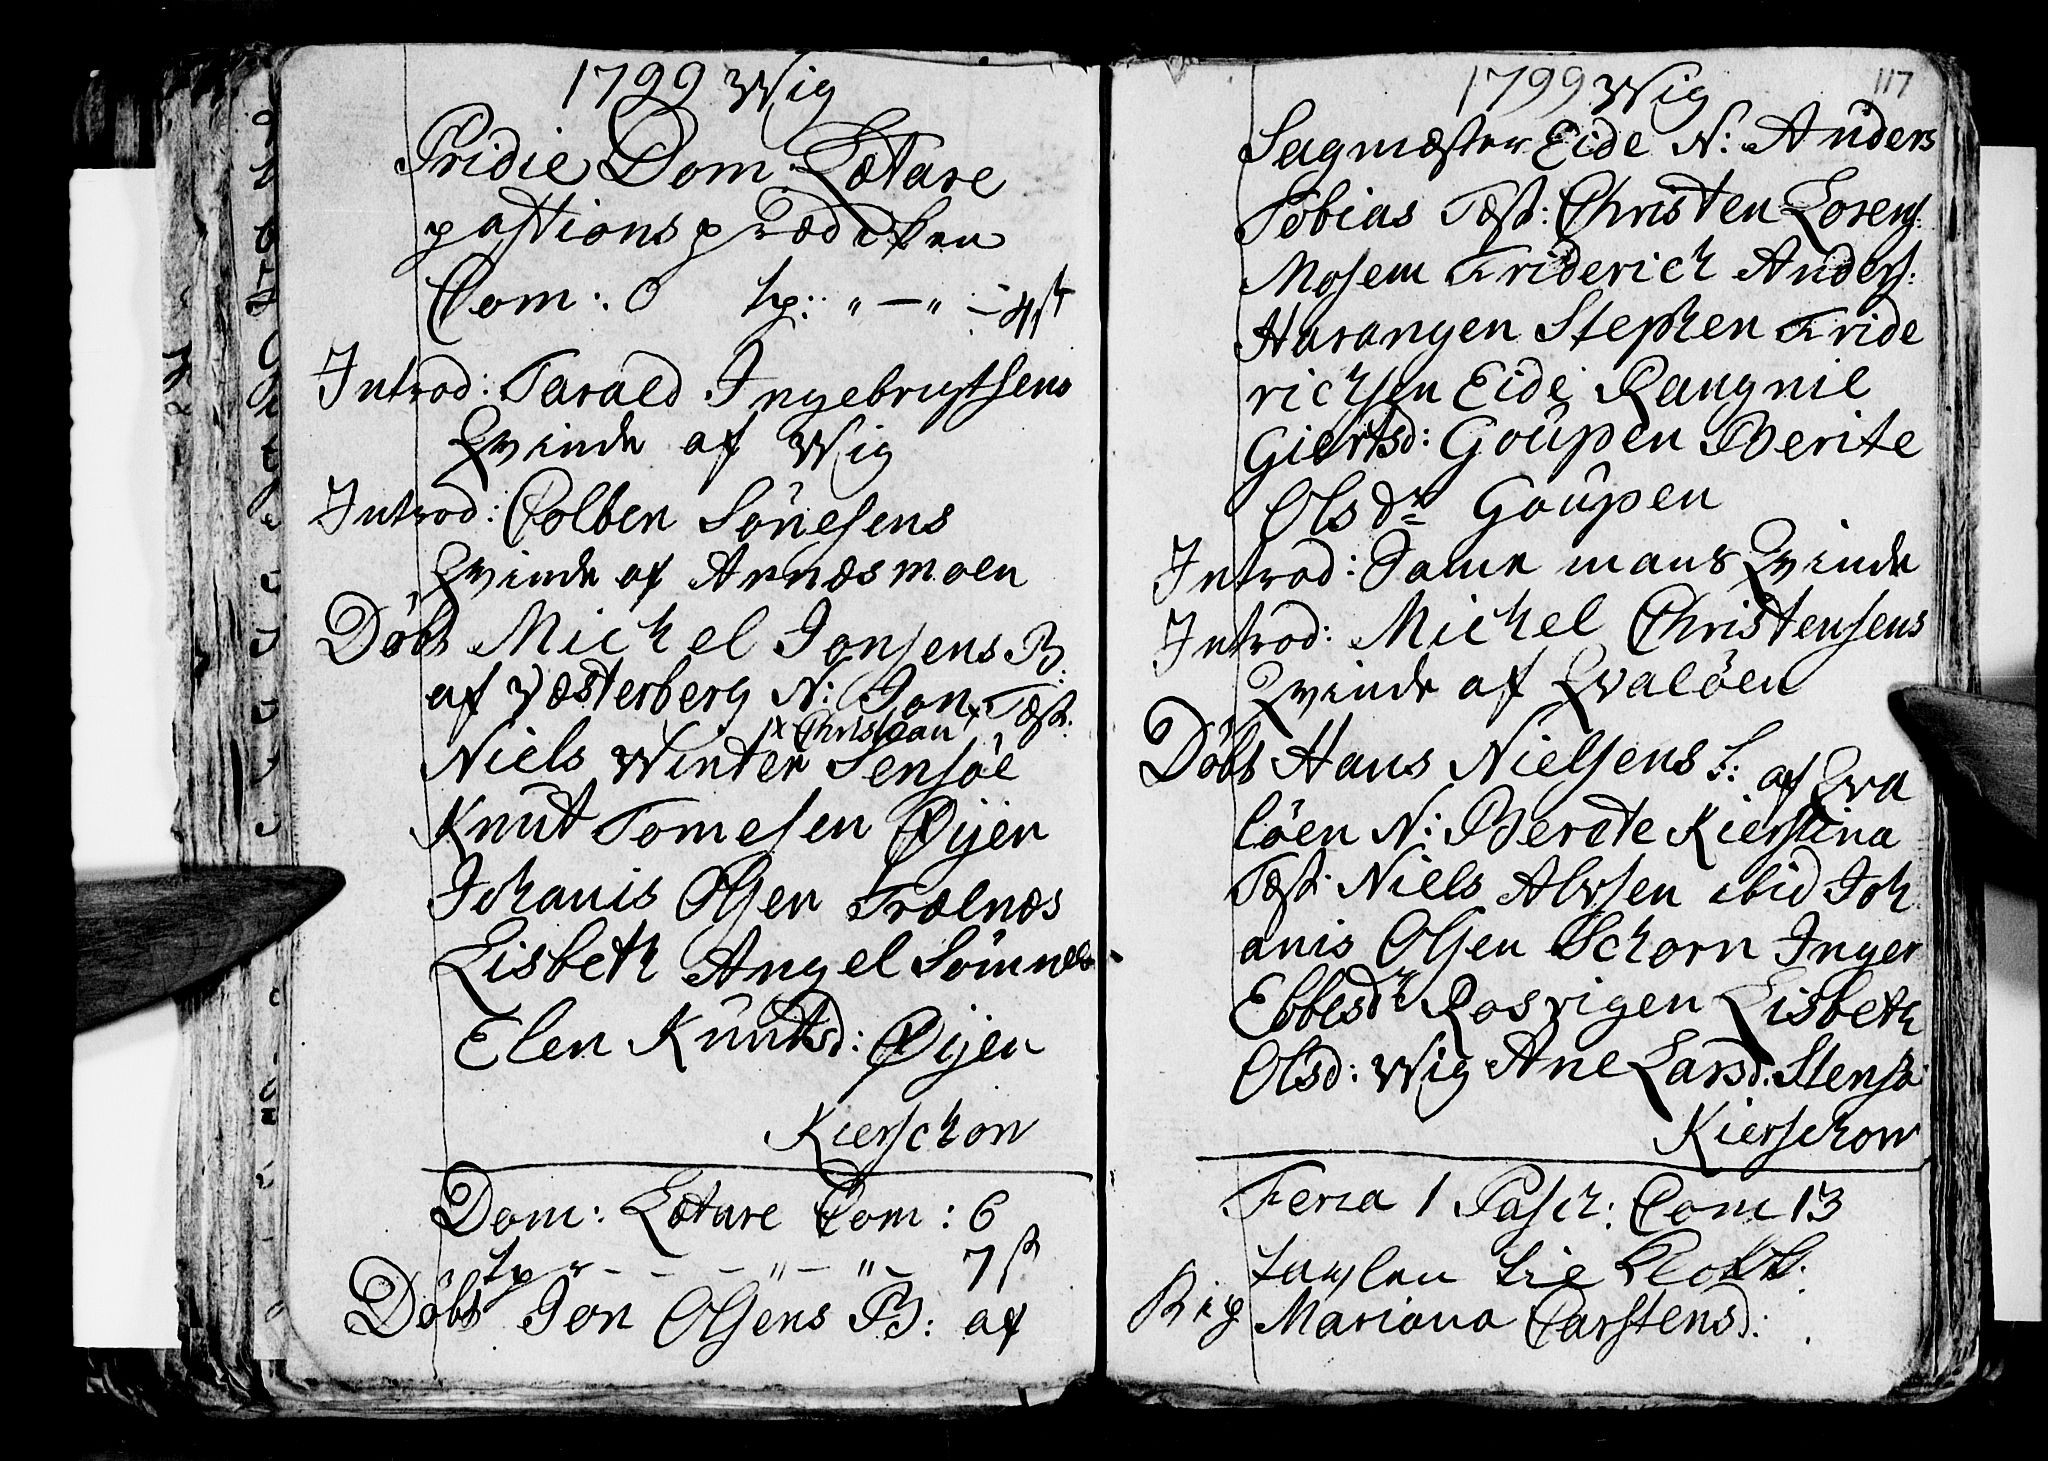 1799 Wig
Pridie Dom: Lætare
passions prædiken
Com: 0 „ — „ — 4 sk
Introd: Tarald Ingebrigtsens
Qvinde af Wig
Introd: Colben Sönesens
Qvinde af Arnæsmoen
Döbt Michel Jonsens B:
af Væsterberg N: Jon Tæst:
x Christian x
Niels Winter Sensöe
Knut Tomesen Øijen
Johanis Olsen Trælnæs
Lisbeth Angel Sömnæs
Elen Knutsd: Øijen
Kierschow
Dom: Lætare Com: 6
— — — „ — „ — 7 sk
Döbt Jon Olsens B: af
1799 Wig 117
Sagmæster Eide N: Anders
Tobias Tæst: Christen Lorens:
Mosem Friderich Anders:
Harangen Stephen Fride
richsen Eide Raugnil
Giertsd: Goupen Berite
Olsdr Goupen
Introd: Same mans Qvinde
Introd: Michel Christensens
Qvinde af Qvalöen
Döbt Hans Nielsens af Qva
löen N: Berete Kierstina
Tæst: Niels Alvsen ibid Joh
anis Olsen Schorn Inger
Ebbesdr Rosvigen Lisbeth
Olsd: Wig Ane Larsd: Stensö
Kierschow
Feria 1 Pasch: Com 13
Mariana Carstensd: